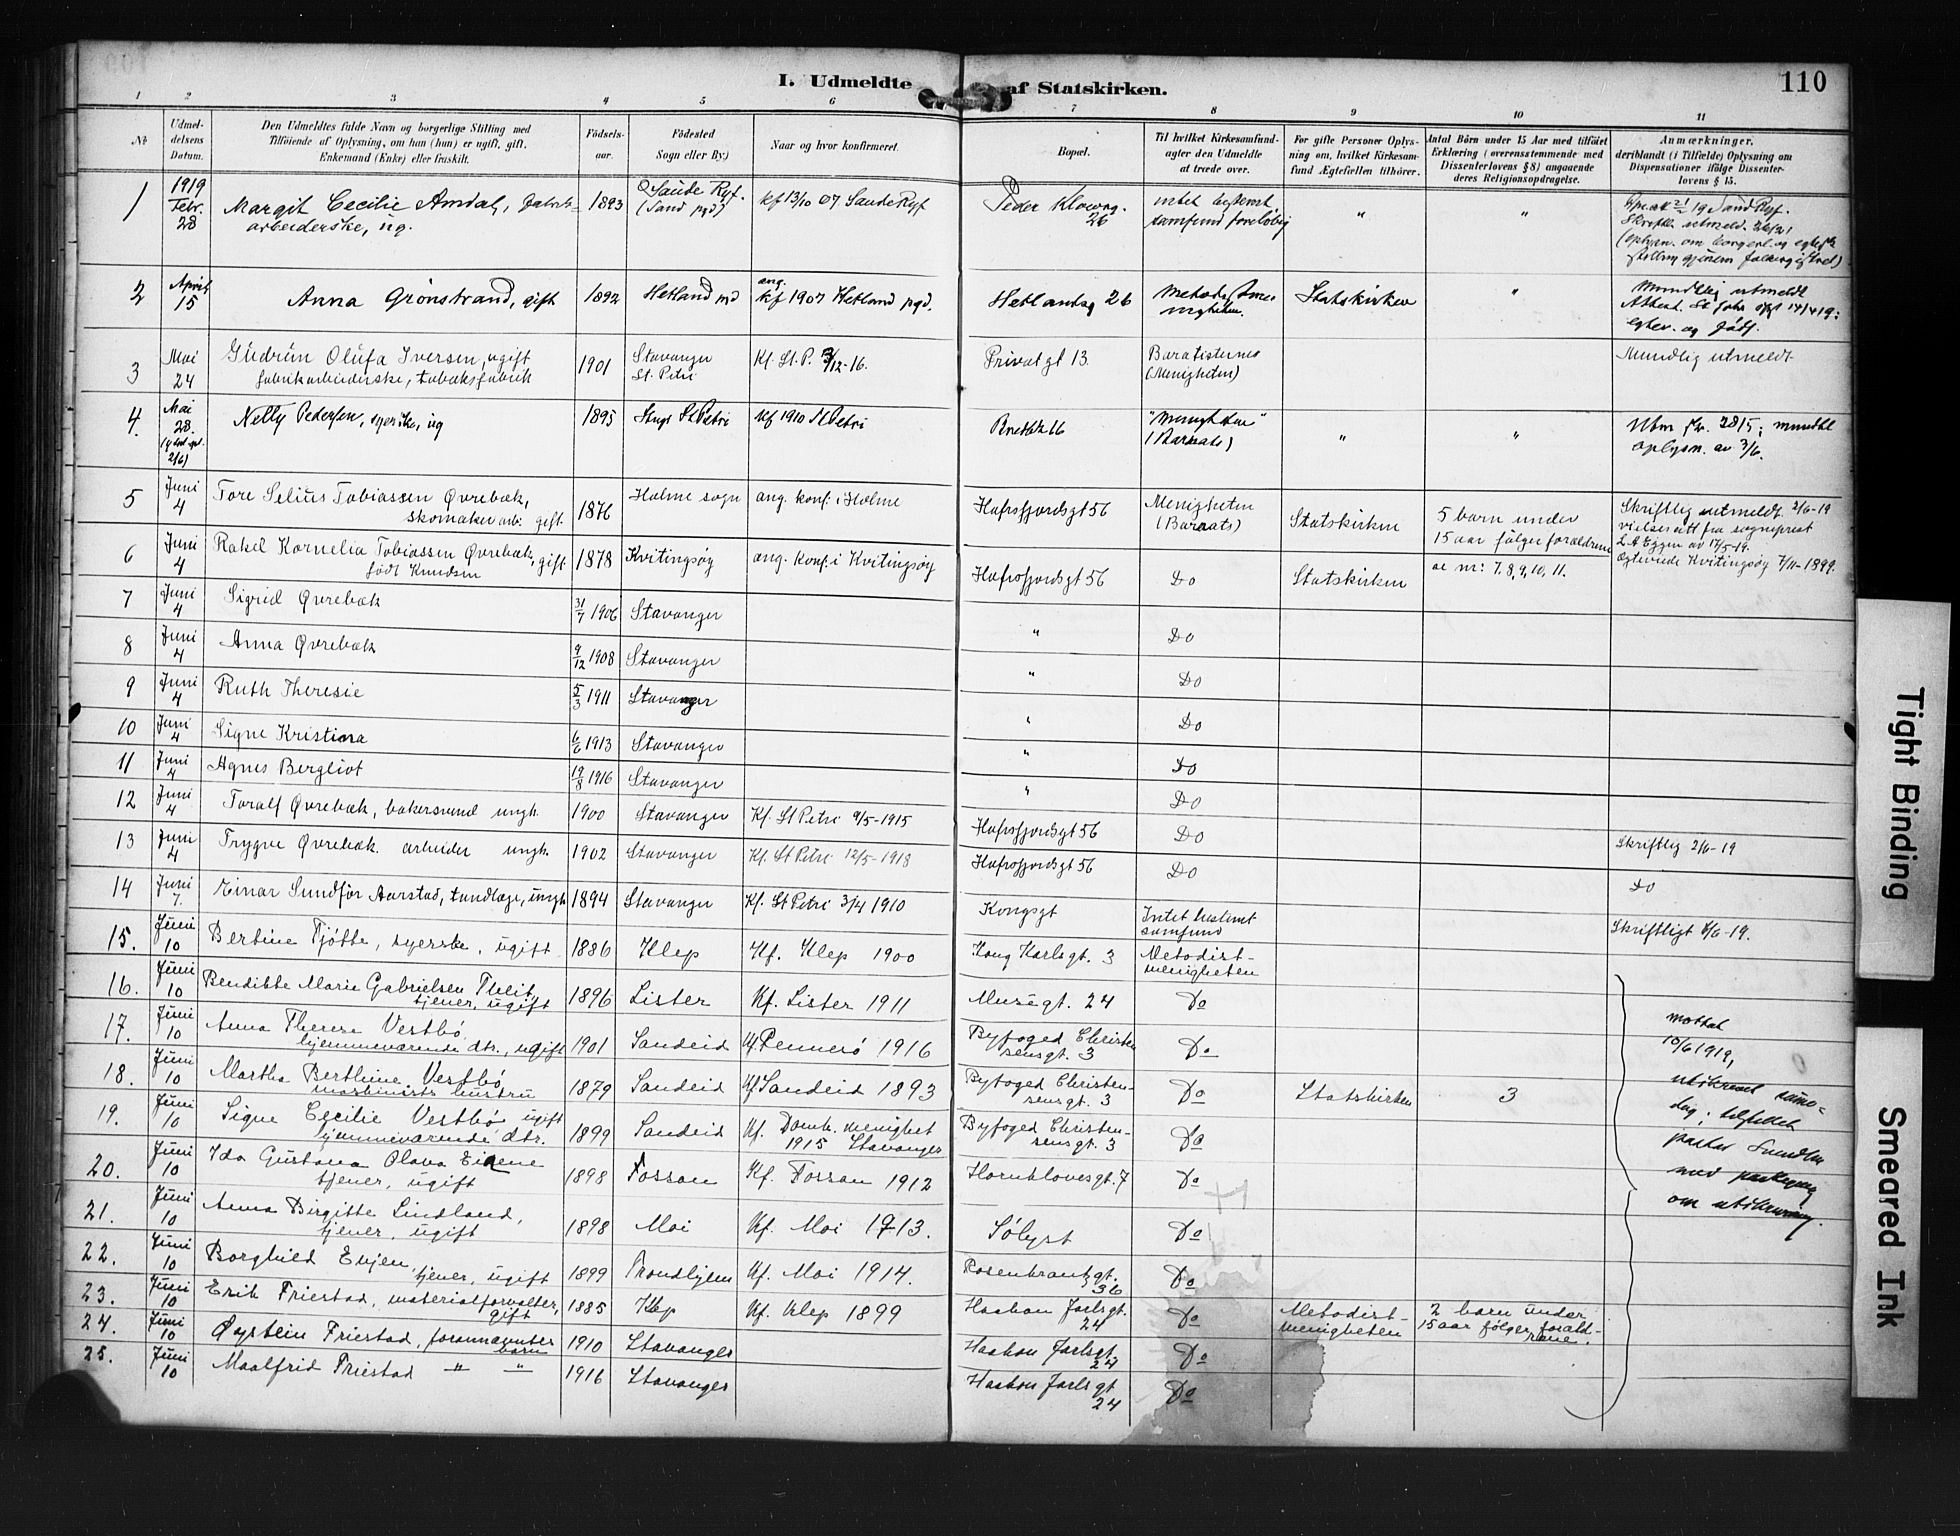 110
I. Udmeldte af Statskirken.
1 2 3 4 5 6 7 8 9 10 11
No
Udmel-
delsens
Datum.
Den Udmeldtes fulde Navn og borgerlige Stilling med
Tilföiende af Oplysning, om han (hun) er ugift, gift,
Enkemand (Enke) eller fraskilt.
Födsels-
aar.
Födested
Sogn eller By.)
Naar og hvor konfirmeret.
Bopæl.
Til hvilket Kirkesamfund-
agter den Udmeldte
at træde over.
For gifte Personer Oplys-
ning om, hvilket Kirkesam-
fund Ægtefællen tilhörer.
Antal Börn under 15 Aar med tilföiet
Erklæring (overensstemmende med
Dissenterlovens § 8) angaaende
deres Religionsopdragelse.
Anmærkninger,
deriblandt (i Tilfælde) Oplysning om
Dispensationer ifölge Dissenter-
lovens § 15.
1 1919 Febr. 28 Margit Cecilie Amdal, fabrik- 1893 Saude Ryf. (Sand pgd) kf 13/10 07 Saude Ryf Peder Klowsg. 26 intet bestemt samfund foreløbig " "
arbeiderske, ug.
2 April 15 Anna Grønstrand, gift 1892 Hetland ang. kf 1907 Hetland pgd. Hetlandsg 26 Statskirken " Mundtlig utmeldt
3 Mai 24 Gudrun Olufa Iversen, ugift 1901 Stavanger St. Petri Kf. St. P. /12-16. Privatgt 13. (Menigheten) Mundlig utmeldt
fabrikarbeiderske, tobaksfabrik
4. Mai 28. Nelly Pedersen, syerske, ug 1895 St Petri kf 1910 St Petri "Menigheten" (Baraats) " " mundtl oplysn. av 3/6.
5 Juni 4 Tore Selius Tobiassen Øvrebæk, 1876 Halme sogn ang. konf. i Halme Hafrsfjordsgt 56 Menigheten (Baraats) Statskirken 5 barn under Skriftlig utmeldt 2/6-19
skomaker arb. gift. 15 aar følger forældrene vielsesatt fra sogneprest
6 Juni 4 Rakel Kornelia Tobiassen Øvrebæk, gift 1878 Kvitingsøy ang. konf. i Kvitingsøy Hafrsfjordsgt 56 Do Statskirken se nr: 7, 8, 9, 10, 11. Ægteviede Kvitingsøy 7/11-1899.
født Knudsen
7 Juni 4 Sigrid Øvrebæk 31/7 1906 Stavanger " Do
8 Juni 4 Anna Øvrebæk 9/12 1908 Stavanger " Do
9 Juni 4 Ruth Theresie 5/3 1911 Stavanger " Do
10 Juni 4 Signe Kristina 6/6 1913 Stavanger " Do
11 Juni 4 Agnes Bergliot 19/8 1916 Stavanger " Do
12 Juni 4 Toralf Øvrebæk, bakersvend ungk. 1900 Stavanger Kf. St Petri 9/5-1915 Hafrsfjordsgt 56 Do Skriftlig 2/6-19
13 Juni 4 Trygve Øvrebæk arbeider ungk. 1902 Stavanger Kf. St Petri 12/5-1918 Hafrsfjordsgt 56 Do Do
14 Juni 7. Einar Sundfør Aarstad, tandlæge, ungk 1894 Stavanger Kf. St Petri 3/4 1910 Kongsgt Intet bestemt samfund Skriftligt 6/6-19.
15. Juni 10 Bertine Tjøtte, syerske, ugift 1886 Klep Kf. Klep 1900 Kong Karlsgt. 3 Metodist-menigheten
16. Juni 10 Bendikte Marie Gabrielsen Theit, 1896 Lister Kf. Lister 1911 Musegt. 24 Do
tjener, ugift
17. Juni 10 Anna Therese Vestbø 1901 Sandeid Kf. Pennerø 1916 Byfoged Christensensgt. 3 Do
hjemmeværende dtr., ugift
18. Juni 10 Martha Berthine Vestbø 1879 Sandeid Kf Sandeid 1893 Byfoged Christen-sensgt. 3 Do Statskirken 3
maskinists hustru
19. Juni 10 Signe Cecilie Vestbø, ugift 1899 Sandeid Kf. Domk. menighet 1915 Stavanger Byfoged Christen-sensgt. 3 Do
hjemmeværende dtr.
20. Juni 10 Ida Gustava Olava Eiane 1898 Fossan Kf. Fossan 1912 Hornklovesgt. 7 Do
tjener, ugift
21. Juni 10 Anna Birgitte Lindland, 1898 Moi Kf. Moi 1913. Sølyst Do
tjener, ugift
22. Juni 10 Borghild Evjen, tjener, ugift 1899 Trondhjem Kf. Moi 1914. Rosenkrantzgt. 36 Do
23. Juni 10 Erik Friestad, materialforvalter, gift 1885 Klep Kf. Klep 1899 Haakon Jarlsgt. 24 Do Metodist-menigheten 2 barn under 15 aar følger foræld-rene.
24. Juni 10 Øystein Friestad, forannævntes barn 1910 Stavanger Haakon Jarlsgt. 24 Do
25. Juni 10 Maalfrid Friestad " " 1916 Stavanger Haakon Jarlsgt 24 Do
mottat
10/6 1919,
utskrevet samme-
dag; tilstillet
pastor
med paategning
om utskrivning.
Tight Binding
Smeared Ink